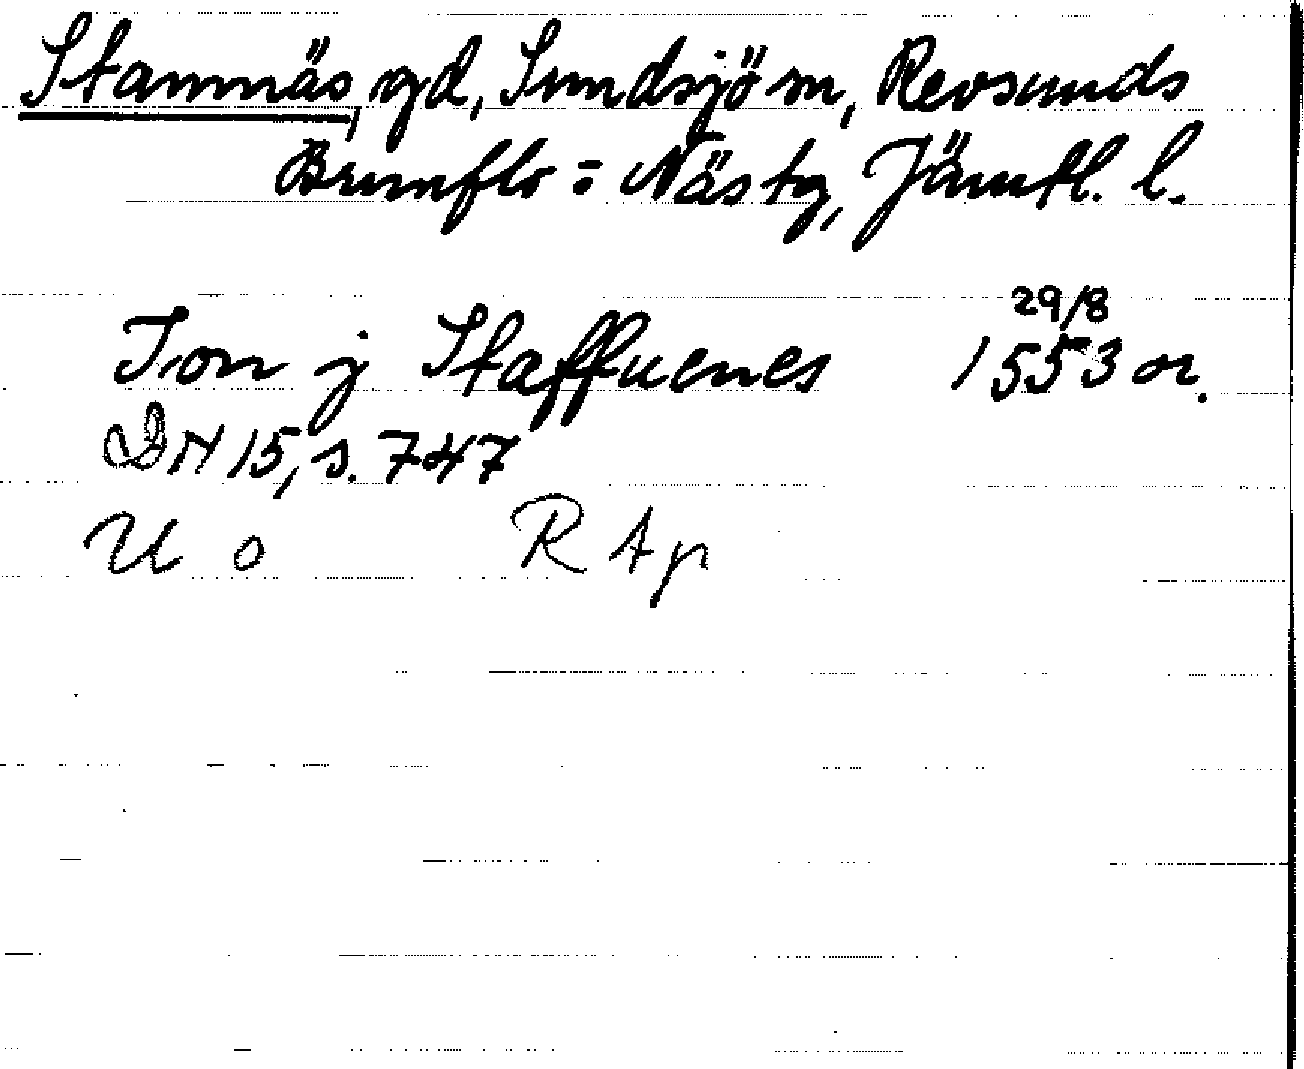 Stamnäs, gd, Sundsjö sn, Revsunds
Brunflo = Näs tg, Jämtl. l.
29/8
Jon j Staffuenes 1553 or.
DN 15, s. 747
U o R Ap